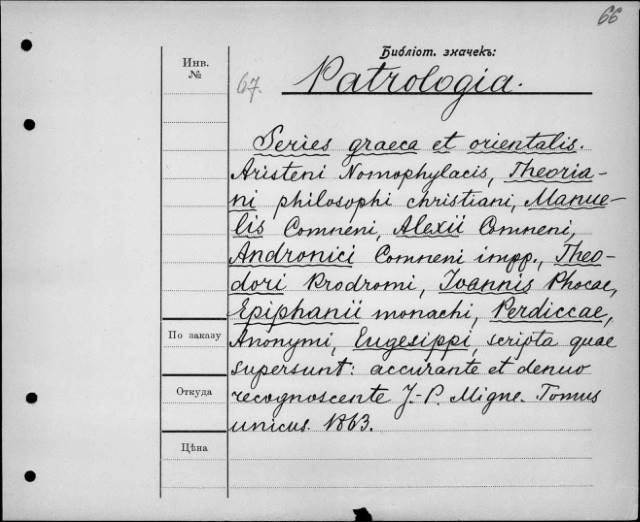 66
Библіот. значекъ:
Инв.
№
67.
Patrologia.
Series graeca et orientalis.
Aristeni Nomophylacis, Theoria-
ni philosophi christiani, Manue-
lis Comneni, Alexii Comneni,
Andronici Comneni impp., Theo-
dori Prodromi, Ioannis Phocae,
Epiphanii monachi, Perdiccae,
Anonymi, Eugesippi, scripta quae
supersunt: accurante et denuo
recognoscente J.-P. Migne. Tomus
unicus. 1863.
По заказу
Откуда
Цѣна